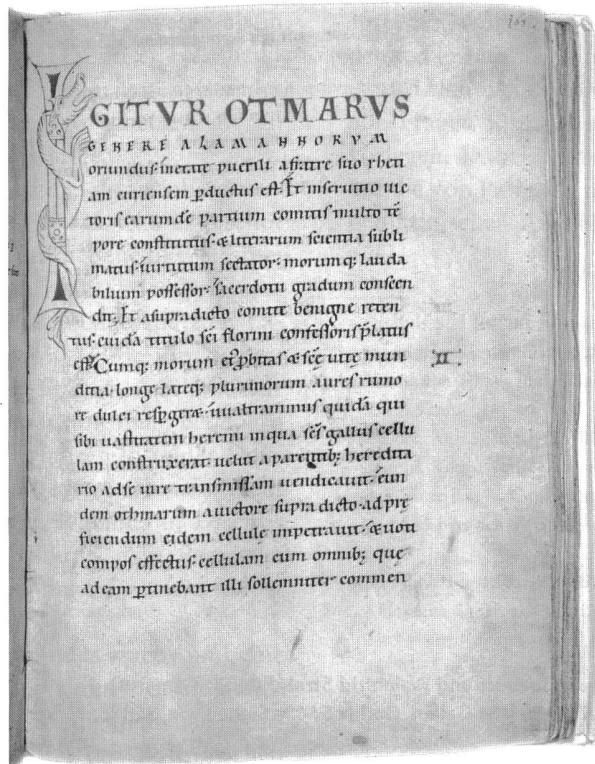 IGITVR OTMARVS
GENERE ALAMANNORVM
oriundus· inetate puerili afratre suo rheti
am curiensem ꝑductus est· Et inseruitio uic
toris earumde partium comitis multo tē
pore constitutus· & literarum scientia subli
matus· uirtutum sectator· morumq; lauda
bilium possessor· sacerdotii gradum conscen
dit; Et asupradicto comite benigne reten
tus· cuidā titulo sc̄i florini confessoris p̄latus
est; Cumq; morum ei ꝓbitas & sc̄ę uitę mun
ditia· longe lateq; plurimorum aures rumo
re dulci respgeret· uualtrammus quidā qui
sibi uastitatem heremi in qua sc̄s gallus cellu
lam construxerat· uelut a parentib; heredita
rio adse iure transmissam uendicauit· eun
dem othmarum auictore supra dicto· ad prę
ficiendum eidem cellulę impetrauit· & uoti
compos effectus· cellulam cum omnib; quę
adeam ꝑtinebant illi sollemniter commen
II